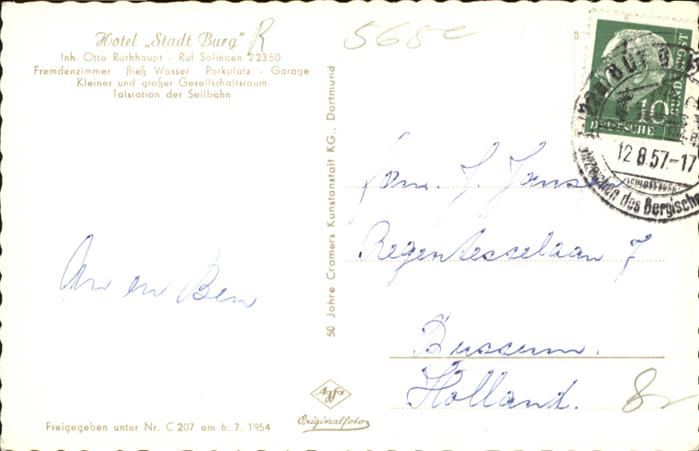 Hotel „Stadt Burg"
Inh. Otto Rothhaupt - Ruf Solingen 22350
Fremdenzimmer fließ Wasser - Parkplatz - Garage
Kleiner und großer Gesellschaftsraum
Talstation der Seilbahn
R
565c
50 Jahre Cramers Kunstanstalt KG., Dortmund
BUNDESPOST
10
DEUTSCHE
12.8.57.-17
(SCHLOSSBURG)
des Bergischen
Fam. J. Jansen
Regentesselaan 7
Bussum.
Holland.
An en Ben
Agfa
Originalfoto
8
Freigegeben unter Nr. C 207 am 6. 7. 1954